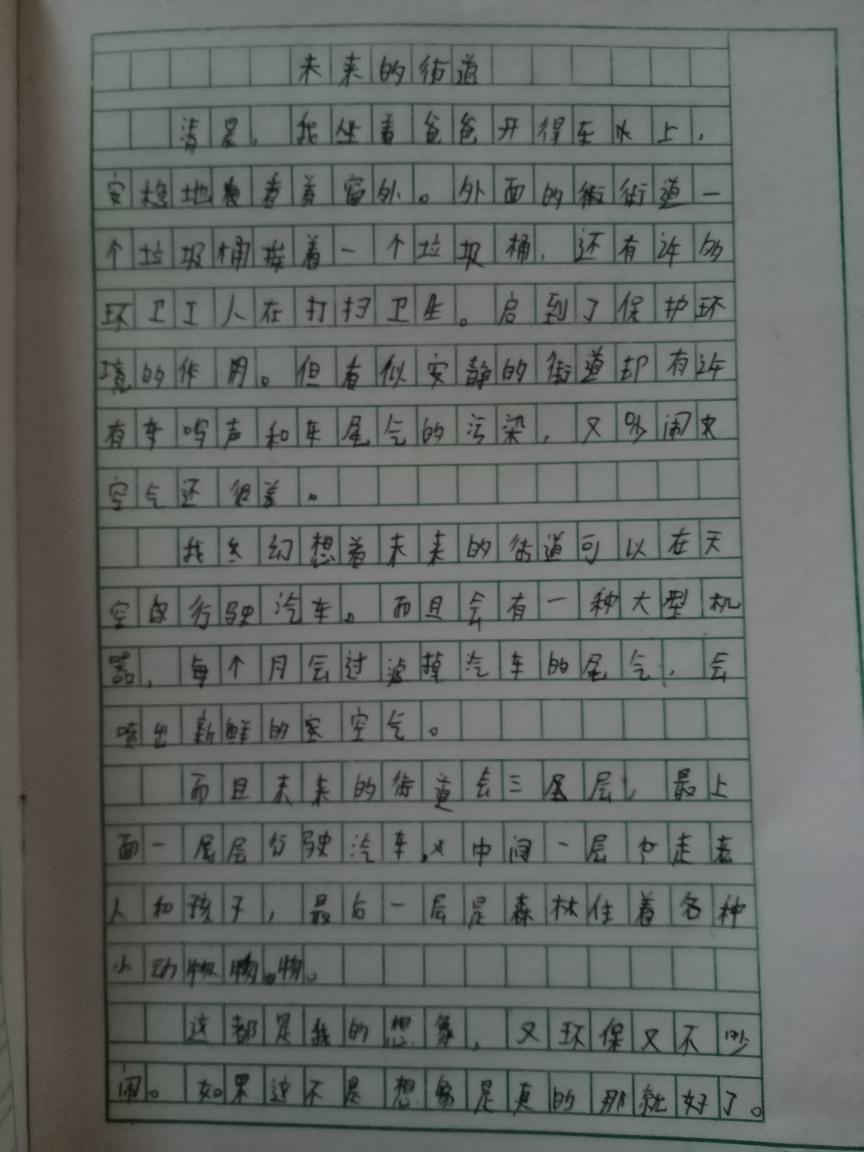 未来的街道
清晨，我坐着爸爸开得车水上，
安稳地看着窗外。外面的街道一
个垃圾桶挨着一个垃圾桶，还有许多
环卫工人在打扫卫生。启到了保护环
境的作用。但看似安静的街道却有许
有车鸣声和车尾气的污染，又吵闹
空气还很差。
我幻想着未来的街道可以在天
空行驶汽车。而且会有一种大型机
器，每个月会过滤掉汽车的尾气，会
喷出新鲜的空气。
而且未来的街道会三层，最上
面一层行驶汽车，中间一层走老
人和孩子，最后一层是森林住着各种
小动物。
这都是我的想象，又环保又不吵
闹。如果这不是想象是真的那就好了。